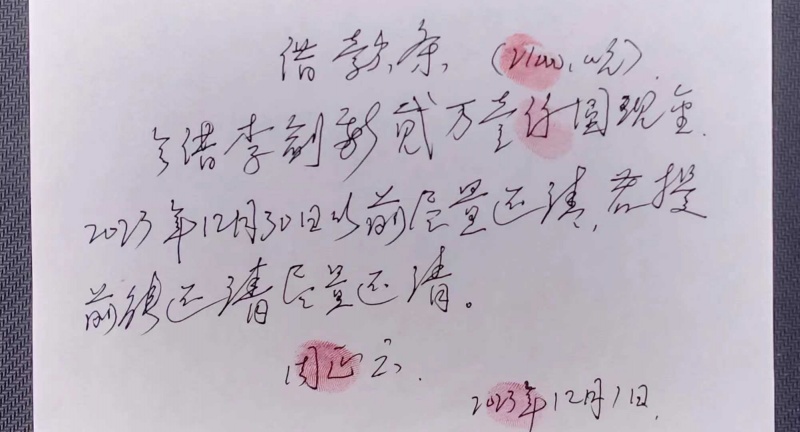 借款条 (21000.00元)
今借李剑新贰万壹仟圆现金.
2023年12月30日以前尽量还清,若提
前须还清尽量还清。
周正云.
2023年12月1日.